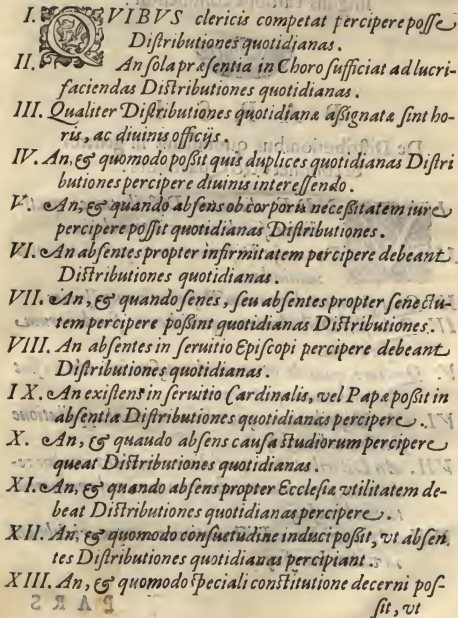 I. QVIBVS clericis competat percipere posse
Distributiones quotidianas.
II. An sola præsentia in Choro sufficiat ad lucri-
faciendas Distributiones quotidianas.
III. Qualiter Distributiones quotidianæ aßignatæ sint ho-
ris, ac diuinis officijs.
IV. An, & quomodo poßit quis duplices quotidianas Distri
butiones percipere diuinis interessendo.
V. An, & quando absens ob corporis neceßitatem iure
percipere possit quotidianas Distributiones.
VI. An absentes propter infirmitatem percipere debeant
Distributiones quotidianas.
VII. An, & quando senes, seu absentes propter senectu-
tem percipere poßint quotidianas Distributiones.
VIII. An absentes in seruitio Episcopi percipere debeant
Distributiones quotidianas.
IX. An existens in seruitio Cardinalis, vel Papæ poßit in
absentia Distributiones quotidianas percipere.
X. An, & quaudo absens causa studiorum percipere
queat Distributiones quotidianas.
XI. An, & quando absens propter Ecclesiæ vtilitatem de-
beat Distributiones quotidianas percipere.
XII. An, & quomodo consuetudine induci poßit, vt absen
tes Distributiones quotidianas percipiant.
XIII. An, & quomodo speciali constitutione decerni pos-
sit, vt